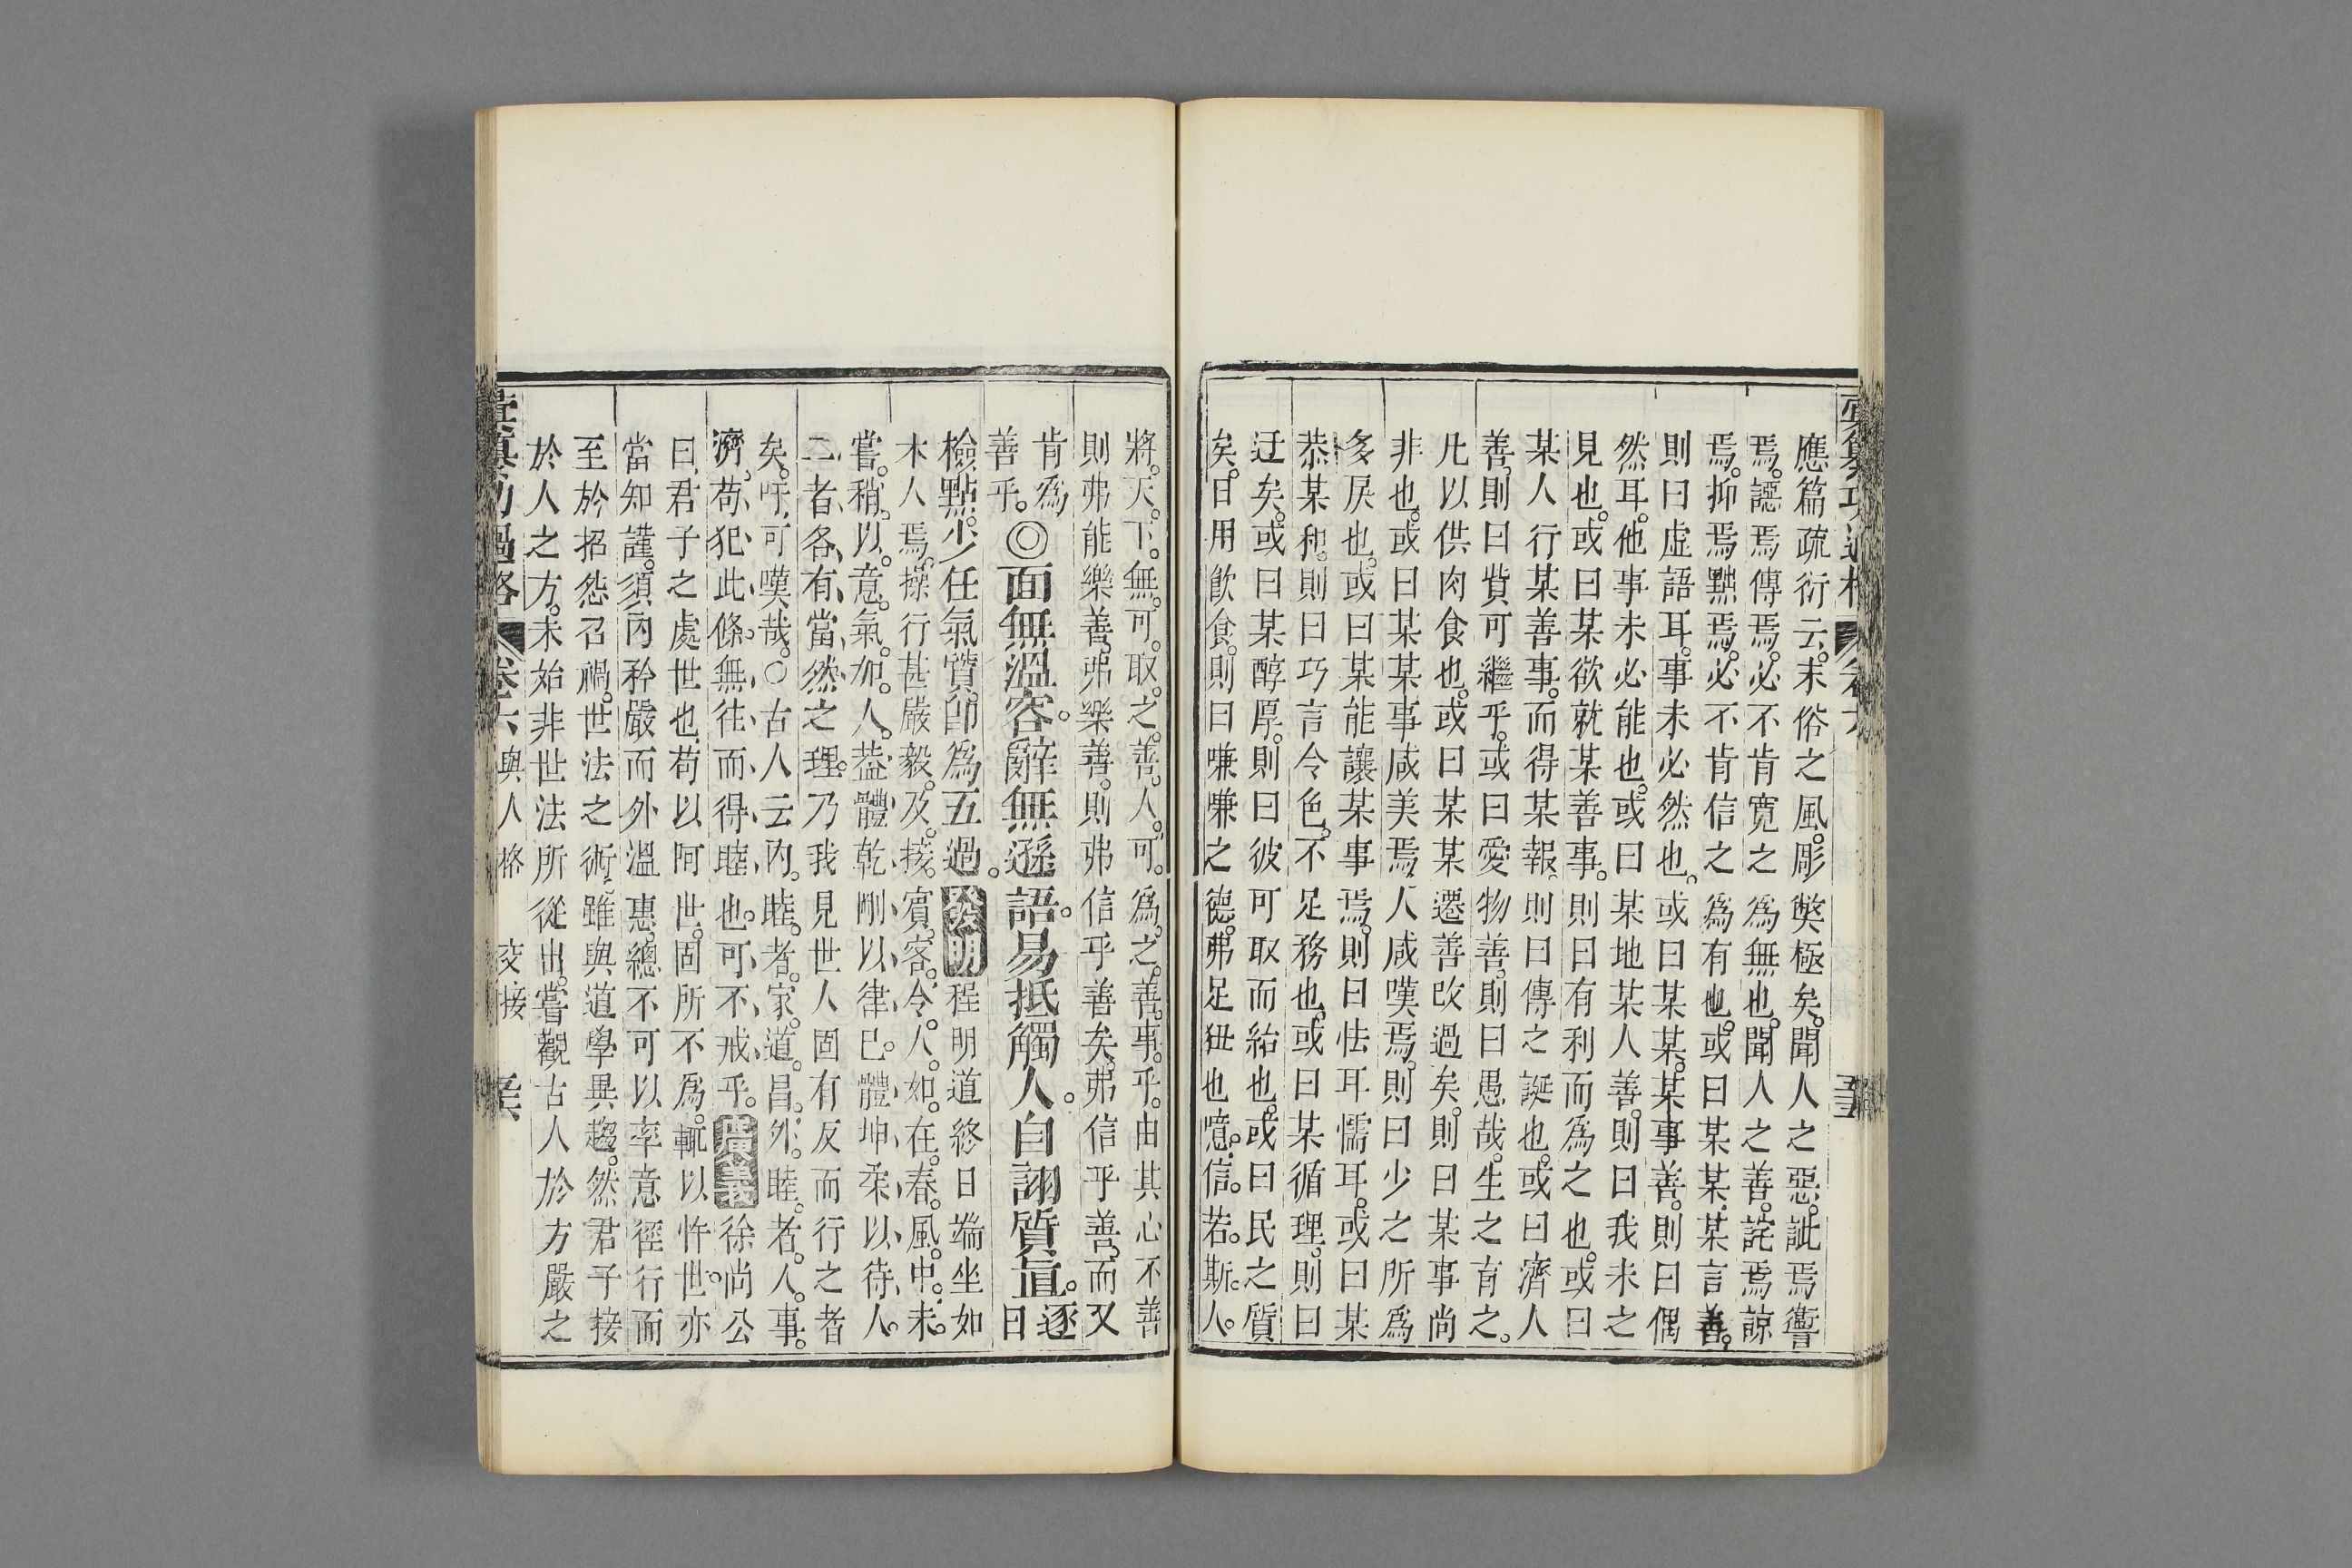 彙纂功過格 卷六
應篇疏衍云。末俗之風。彫獘極矣。聞人之惡。訾焉讆
焉。謡焉傳焉。必不肯寛之為無也。聞人之善。詫焉諒
焉。抑焉點焉。必不肯信之為有也。或曰某某。某言善。
則曰虛語耳。事未必然也。或曰某某。某事善。則曰偶
然耳。他事未必能也。或曰某地某人善。則曰我未之
見也。或曰某欲就某善事。則曰有利而為之也。或曰
某人行某善事。而得某報。則曰傳之誕也。或曰濟人
善。則曰貲可繼乎。或曰愛物善。則曰愚哉。生之育之。
凡以供肉食也。或曰某某遷善改過矣。則曰某事尚
非也。或曰某某事咸美焉。人咸嘆焉。則曰少之所為
多戾也。或曰某能讓某事焉。則曰怯耳懦耳。或曰某
恭某和。則曰巧言令色。不足務也。或曰某循理。則曰
迂矣。或曰某醇厚。則曰彼可取而紿也。或曰民之質
矣。日用飲食。則曰嗛嗛之德。弗足狃也。噫。信若斯人。
將天下無可取之善人。可為之善事乎。由其心不善
則弗能樂善。弗樂善。則弗信乎善矣。弗信乎善。而又
肯為善乎。◎面無溫容。辭無遜語。易抵觸人。自詡質直。逐日
檢點。少任氣質。卽為五過。發明程明道終日端坐如
木人焉。操行甚嚴毅。及接賓客。令人如在春風中。未
嘗稍以意氣加人。葢體乾剛以律己。體坤柔以待人。
二者各有當然之理。乃我見世人固有反而行之者
矣。吁。可嘆哉。○古人云內睦者家道昌。外睦者人事
濟。苟犯此條。無往而得睦也。可不戒乎。徐尚公
曰。君子之處世也。苟以阿世。固所不為。輒以忤世。亦
當知謹。須內矜嚴而外溫惠。總不可以率意徑行而
至於招怨召禍。世法之術。雖與道學異趨。然君子接
於人之方。未始非世法所從出。嘗觀古人於方嚴之
彙纂功過格 卷六 與人格 交接